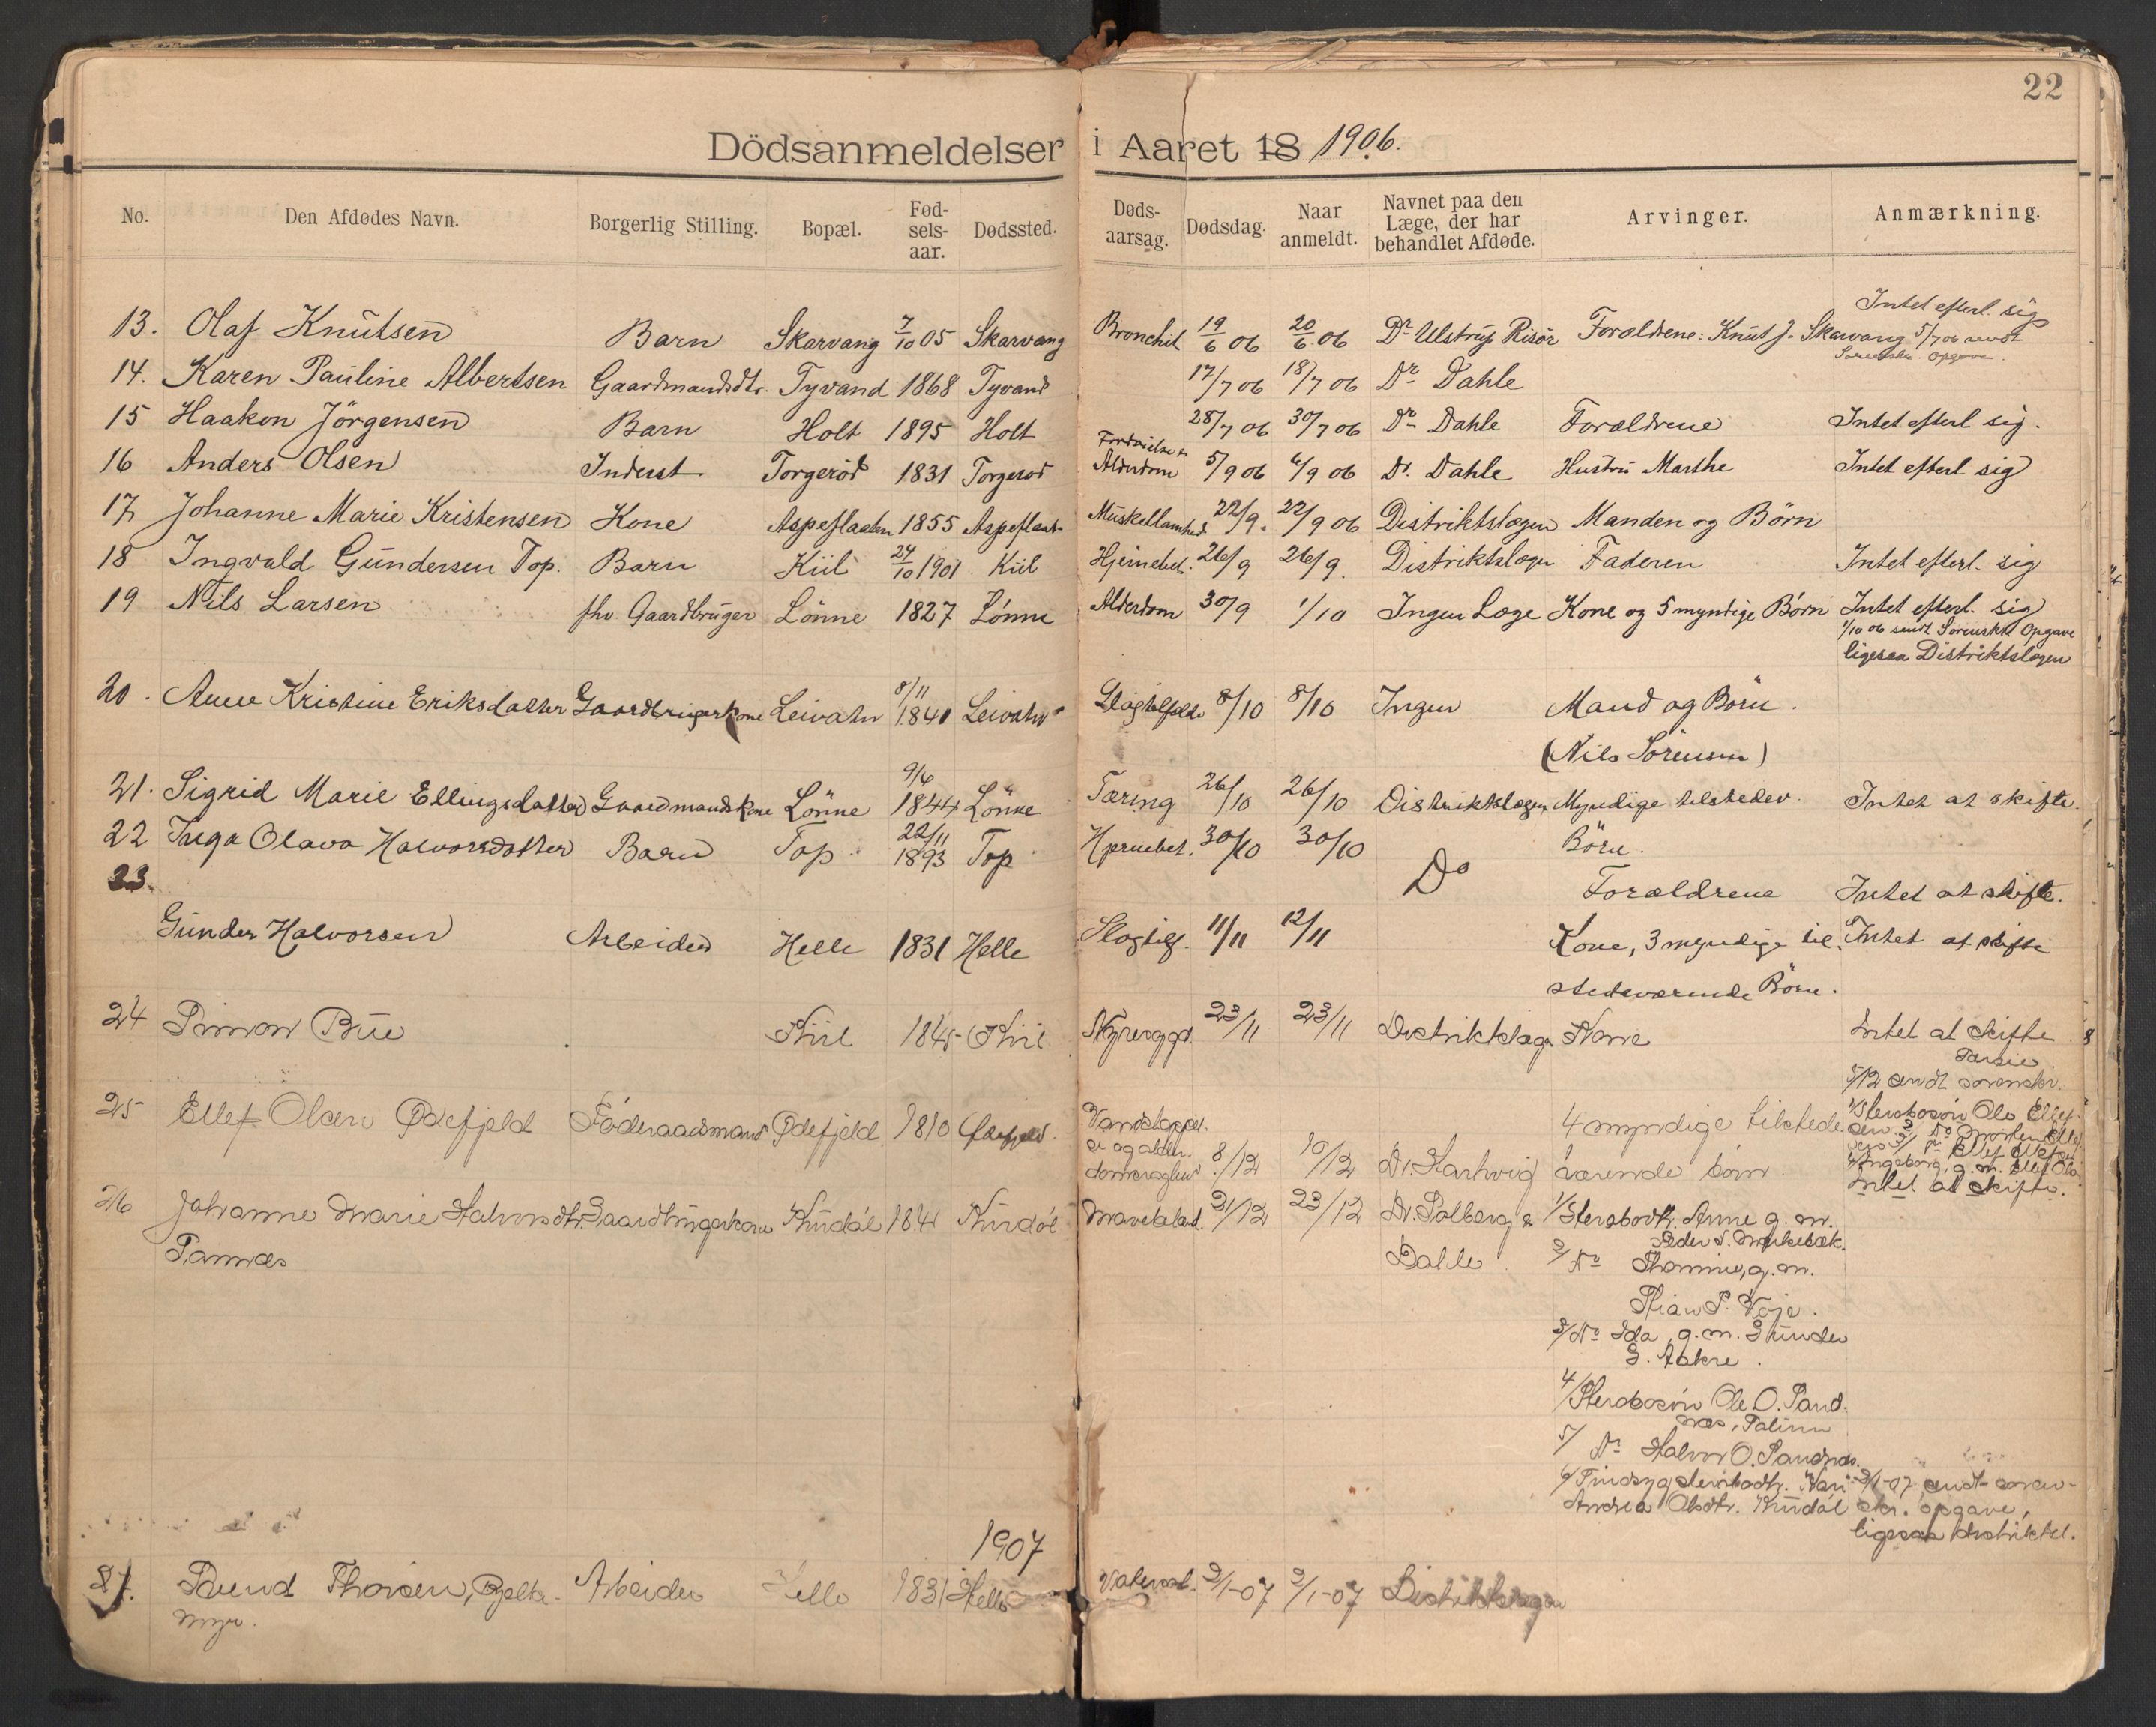 22
Dödsanmeldelser i Aaret 18 1906.
No. Den Afdødes Navn. Borgerlig Stilling. Bopæl. Fød-selsaar. Dødssted. Dødsaarsag. Dødsdag. Naar anmeldt. Navnet paa den Læge, der har behandlet Afdøde. Arvinger. Anmærkning.
Intet efterl. sig
13. Olaf Knutsen Barn Skarvang 7/10 05 Skarvang Bronchit 19/6 06 20/6 06 Dr Ulstrup Risør Forældrene: Knut J. Skarvang 5/7 06 sendt
Sorenskr. Opgave.
14. Karen Pauline Albertsen Gaardmandsdtr. Tyvand 1868 Tyvand 17/7 06 18/7 06 Dr Dahle
15 Haakon Jörgensen Barn Holt 1895 Holt 28/7 06 30/7 06 Dr Dahle Forældrene Intet efterl sig.
16 Anders Olsen Inderst Torgeröd 1831 Torgerod Alderdom 5/9 06 6/9 06 Dr. Dahle Hustru Marthe Intet efterl sig
17 Johanne Marie Kristensen Kone Aspeflaaten 1855 Aspeflaat- Muskellamhed 22/9. 22/9 06 Distriktslægen Manden og Börn
18 Ingvald Gundersen Top. Barn Kiil 24/10 1901 Kiil Hjernebet. 26/9 26/9. Distriktslægen Faderen Intet efterl. sig
19 Nils Larsen fhv. Gaardbruger Lönne 1827 Lönne Alderdom 30/9 1/10 Ingen Læge Kone og 5 myndige Börn Intet efterl. sig
1/10 06 sendt Sorenskr Opgave
ligesaa Distriktslægen
20. Anne Kristine Eriksdatter Gaardbrugerkone Leivatn 8/11 1841 Leivatn Slagtilfælde 8/10 8/10 Ingen Mand og Börn.
(Nils Sörensen)
21. Sigrid Marie Ellingsdatter Gaardmandskone Lönne 9/6 1844 Lönne Tæring 26/10 26/10 Distriktslægen Myndige tilstedev. Intet at skifte.
Börn.
22 Inga Olava Halvorsdatter Barn Top 22/11 1893 Top Hjernebet. 30/10 30/10 Do Forældrene Intet at skifte.
23.
Gunder Halvorsen Arbeider Helle 1831 Helle Slagtilf. 11/11 12/11 Kone, 3 myndige til- Intet at skifte
stedeværende Börn.
24 Simon Bue Kiil 1845 Kiil Nyresygd. 23/11 23/11 Distriktslæge Kone Intet at skifte
5/12 sendt sorenskr.
25 Ellef Olsen Ødefjeld Föderaadsmand Ødefjeld 1810 Ødefjeld. 8/12 10/12 Dr. Hartvig 4 myndige tilstede
værende börn 1/Sterobosön Ole Ellef-
sen 2/ Do Morten Ellef
sen 3/ Do Ellef Ellefsen
4/Ingeborg, g.m. Ellef Ols.
Intet at skifte.
26 Johanne Marie Halvorsdtr. Gaardbrugerkone Kundöl 1841 Kundöl Mavekatar. 21/12 23/12 Dr. Solberg & 1/Sterobodtr. Anne g.m.
Peder S. Myrkebæk.
Sannæs Dahle. 2/ Do Thomine, g.m.
Stian P. Voje.
3/ Do Ida, g.m. Gunder
G. Aakre.
4/Sterobosön Ole O. Sand-
næs,
5/ Do Halvor O. Sandnæs.
6/ Sindsyg sterobodtr. 2/1-07 sendt soren-
Andrea Olsdtr. Kundöl skr. opgave,
ligesaa distriktsl.
1907
27. Svend Thorsen, Bjelke- Arbeider Helle 1831 Helle 2/1-07 2/1-07 Distriktslægen
myr.